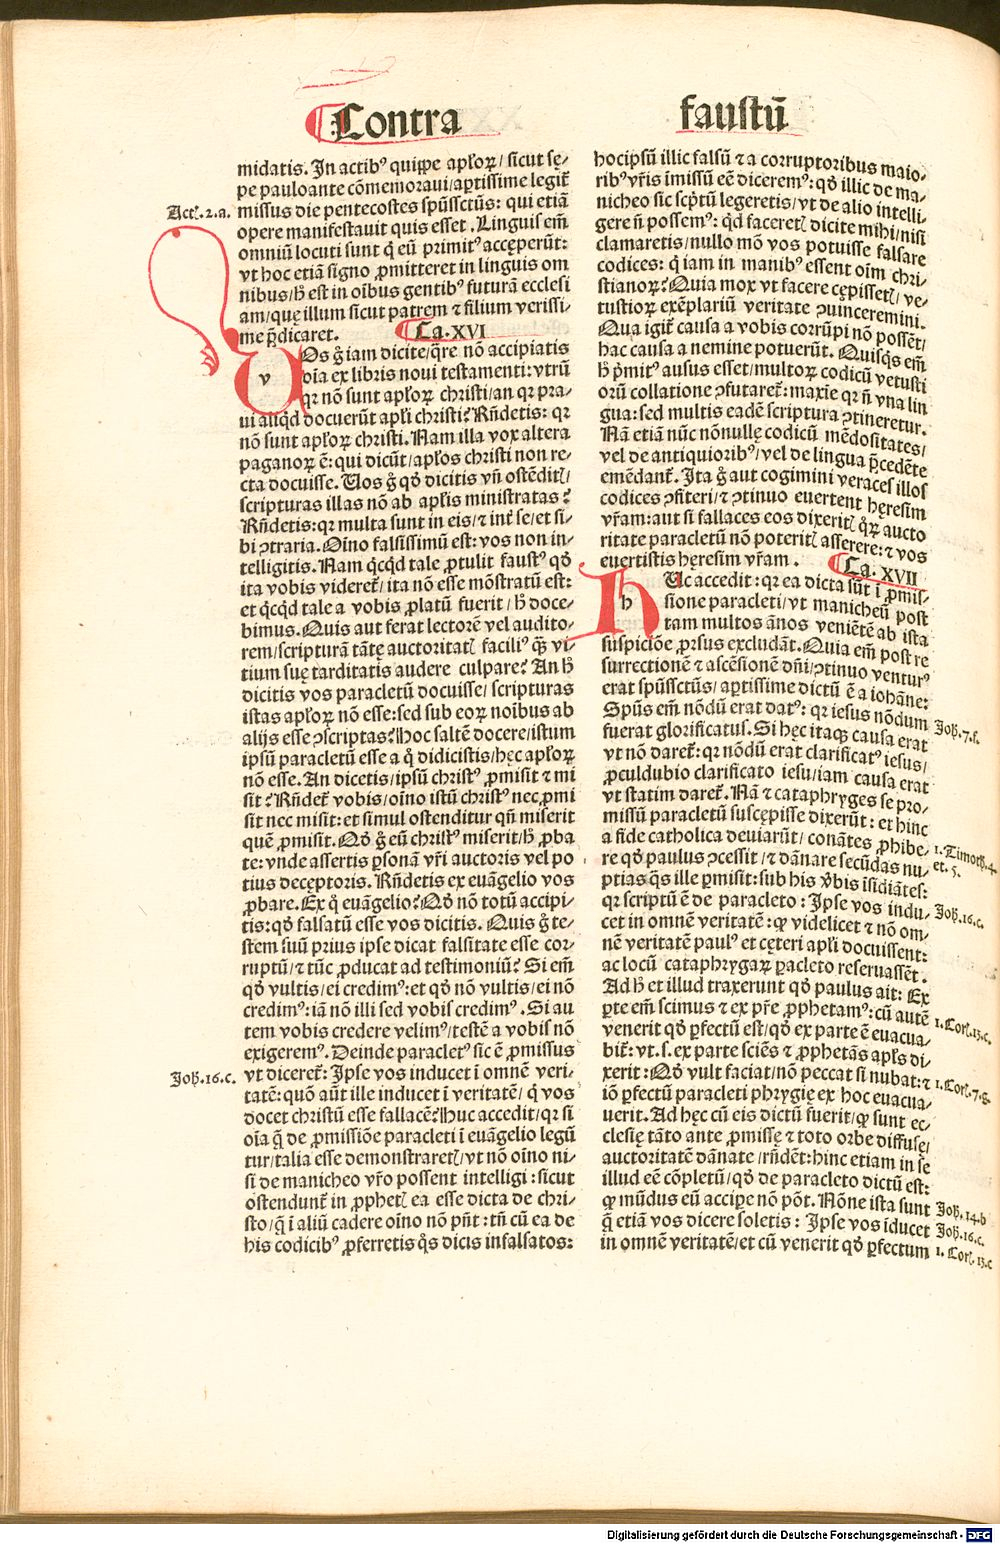 Contra
faustū
midatis. In actibꝰ quippe apłoꝝ/ sicut sę-
pe pauloante cōmemoraui/ aꝑtissime legit᷑
Actꝭ.2.a.
missus die pentecostes spūssctūs: qui etiā
opere manifestauit quis esset. Linguis em̄
omniū locuti sunt q̇ eū primitꝰ accęperūt:
vt hoc etiā signo ꝓmitteret in linguis om
nibus/ hꝫ est in oībus gentibꝰ futurā ecclesi
am/ quę illum sicut patrem ⁊ filium verissi-
me p̄dicaret.
Ca.XVI
v
Vos g̊ iam dicite/ q̄re nō accipiatis
oīa ex libris noui testamenti: vtrū
qꝛ nō sunt apłoꝝ christi/ an qꝛ pra-
ui aliqd docuerūt apłi christi? Rn̄detis: qꝛ
nō sunt apłoꝝ christi. Nam illa vox altera
paganoꝝ ē: qui dicūt/ apłos christi non re-
cta docuisse. Uos g̊ qd̊ dicitis vn̄ ostēditꝭ/
scripturas illas nō ab apłis ministratas?
Rn̄detis: qꝛ multa sunt in eis/ ⁊ int᷑ se/ et si-
bi ꝯtraria. Oīno falsissimū est: vos non in-
telligitis. Nam qcqd tale ꝓtulit faustꝰ qd̊
ita vobis videret᷑/ ita nō esse mōstratū est:
et qcqd tale a vobis ꝓlatū fuerit/ hꝫ doce-
bimus. Quis aut ferat lectorē vel audito-
rem/ scripturā tātę auctoritatꝭ faciliꝰ q̄ꝫ vi-
tium suę tarditatis audere culpare? An hꝫ
dicitis vos paracletū docuisse/ scripturas
istas apłoꝝ nō esse: sed sub eoꝝ noībus ab
alijs esse ꝯscriptas? Hoc saltē docere/ istum
ipsū paracletū esse a q̊ didicistis/ hęc apłoꝝ
nō esse. An dicetis/ ipsū christꝰ ꝓmisit ⁊ mi
sit? Rn̄det᷑ vobis/ oīno istū christꝰ nec ꝓmi
sit nec misit: et simul ostenditur qn̄ miserit
quē ꝓmisit. Qd̊ g̊ eū christꝰ miserit/ hꝫ ꝓba
te: vnde assertis ꝑsonā vr̄i auctoris vel po
tius decęptoris. Rn̄detis ex euāgelio vos
ꝓbare. Ex q̊ euāgelio? Qd̊ nō totū accipi-
tis: qd̊ falsatū esse vos dicitis. Quis g̊ te-
stem suū prius ipse dicat falsitate esse cor-
ruptū/ ⁊ tūc ꝓducat ad testimoniū? Si em̄
qd̊ vultis/ ei credimꝰ: et qd̊ nō vultis/ ei nō
credimꝰ: iā nō illi sed vobis credimꝰ. Si au
tem vobis credere velimꝰ/ testē a vobis nō
exigeremꝰ. Deinde paracletꝰ sic ē ꝓmissus
Joh̄.16.c.
vt diceret᷑: Ipse vos inducet ī omnē veri-
tatē: quō aūt ille inducet ī veritatē/ q̇ vos
docet christū esse fallacē? Huc accedit/ qꝛ si
oīa q̄ de ꝓmissiōe paracleti ī euāgelio legū
tur/ talia esse demonstraretꝭ/ vt nō oīno ni-
si de manicheo vr̄o possent intelligi: sicut
ostendunt᷑ in ꝓphetꝭ ea esse dicta de chri-
sto/ q̄ ī aliū cadere oīno nō pn̄t: tn̄ cū ea de
his codicibꝰ ꝓferretis q̊s dicis infalsatos:
hocipsū illic falsū ⁊ a corruptoribus maio-
ribꝰ vr̄is īmissū eē diceremꝰ: qd̊ illic de ma-
nicheo sic scp̄tū legeretis/ vt de alio intelli-
gere n̄ possemꝰ: qd faceretꝭ dicite mihi/ nisi
clamaretis/ nullo mō vos potuisse falsare
codices: q̇ iam in manibꝰ essent oīm chri-
stianoꝝ? Quia mox vt facere cępissetꝭ/ ve-
tustioꝝ exēplariū veritate ꝯuinceremini.
Qua igit᷑ causa a vobis corrūpi nō possēt/
hac causa a nemine potuerūt. Quisqs em̄
hꝫ p̄mitꝰ ausus esset/ multoꝝ codicū vetusti
orū collatione ꝯfutaret᷑: maxīe qꝛ n̄ vna lin
gua: sed multis eadē scriptura ꝯtineretur.
Nā etiā nūc nōnullę codicū mēdositates/
vel de antiquioribꝰ/ vel de lingua p̄cedēte
emēdant᷑. Ita g̊ aut cogimini veraces illos
codices ꝯfiteri/ ⁊ ꝯtinuo euertent hęresim
vr̄am: aut si fallaces eos dixeritꝭ q̊ꝝ aucto
ritate paracletū nō poteritꝭ asserere: ⁊ vos
euertistis hęresim vr̄am.
Ca. XVII
h
Uc accedit: qꝛ ea dicta sūt ī ꝓmis-
sione paracleti/ vt manicheū post
tam multos ānos veniētē ab ista
suspiciōe ꝓrsus excludāt. Quia em̄ post re
surrectionē ⁊ ascēsionē dn̄i/ ꝯtinuo venturꝰ
erat spūssctūs/ aꝑtissime dictū ē a iohāne:
Spūs em̄ nōdū erat datꝰ: qꝛ iesus nōdum
Joh̄.7.f.
fuerat glorificatus. Si hęc itaqꝫ causa erat
vt nō daret᷑: qꝛ nōdū erat clarificatꝰ iesus/
ꝓculdubio clarificato iesu/ iam causa erat
vt statim daret᷑. Nā ⁊ cataphryges se pro-
missū paracletū suscępisse dixerūt: et hinc
a fide catholica deuiarūt/ conātes ꝓhibe-
1.Timoth̄.4.
re qd̊ paulus ꝯcessit/ ⁊ dānare secūdas nu-
et.5.
ptias q̊s ille ꝑmisit: sub his v̄bis īsidiātes:
qꝛ scriptū ē de paracleto: Ipse vos indu-
Joh̄.16.c.
cet in omnē veritatē: qꝫ videlicet ⁊ nō om-
nē veritatē paulꝰ et cęteri apłi docuissent:
ac locū cataphrygaꝝ ꝑacleto reseruassēt.
Ad hꝫ et illud traxerunt qd̊ paulus ait: Ex
ꝑte em̄ scimus ⁊ ex ꝑte ꝓphetamꝰ: cū autē
1.Corꝭ.13.c.
venerit qd̊ ꝑfectū est/ qd̊ ex parte ē euacua-
bit᷑: vt.s. ex parte sciēs ⁊ ꝓphetās apłs di-
xerit: Qd̊ vult faciat/ nō peccat si nubat: ⁊
1.Corꝭ.7.g.
iō ꝑfectū paracleti phrygię ex hoc euacua-
uerit. Ad hęc cū eis dictū fuerit/ qꝫ sunt ec-
clesię tāto ante ꝓmissę ⁊ toto orbe diffusę/
auctoritatē dānate/ rn̄dēt: hinc etiam in se
illud eē cōpletū/ qd̊ de paracleto dictū est:
qꝫ mūdus eū accipe nō pōt. Nōne ista sunt
Joh̄.14.b
q̄ etiā vos dicere soletis: Ipse vos īducet
Joh̄.16.c.
in omnē veritatē/ et cū venerit qd̊ ꝑfectum
1.Corꝭ.13.c
Digitalisierung gefördert durch die Deutsche Forschungsgemeinschaft - DFG